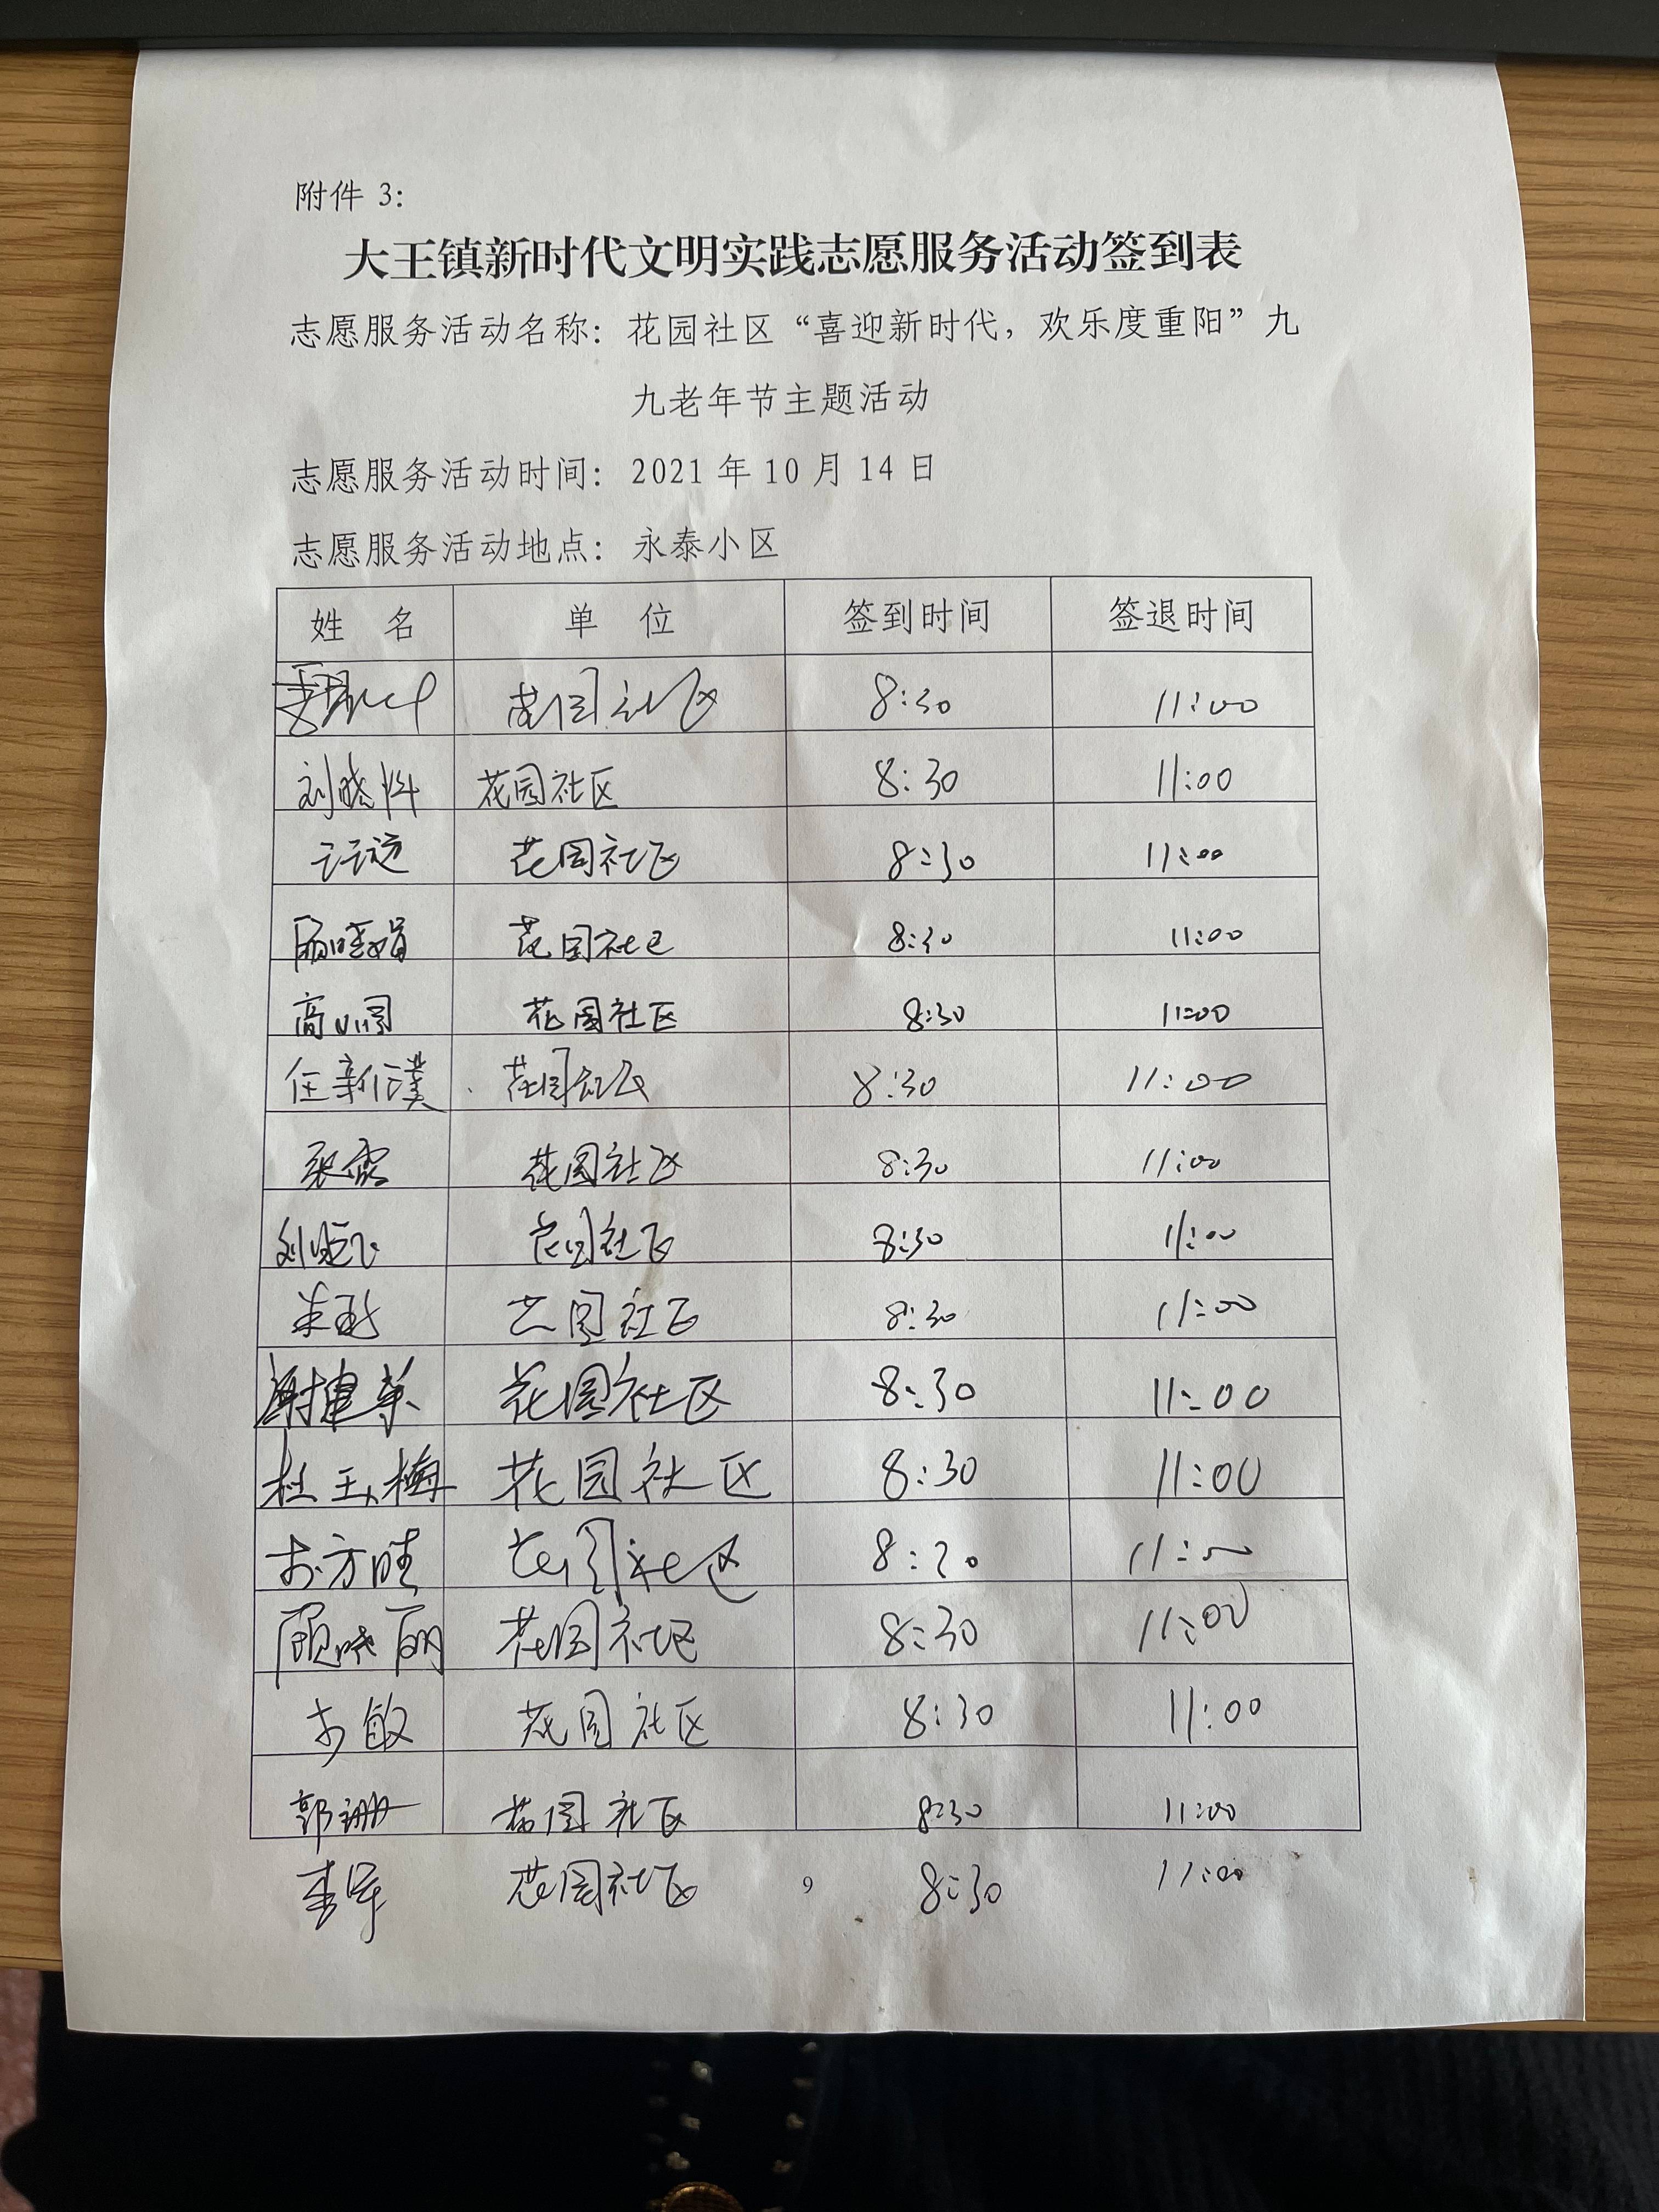 附件 3:
大王镇新时代文明实践志愿服务活动签到表
志愿服务活动名称: 花园社区“喜迎新时代, 欢乐度重阳”九
九老年节主题活动
志愿服务活动时间: 2021 年 10 月 14 日
志愿服务活动地点: 永泰小区
姓 名 单 位 签到时间 签退时间
花园社区 8:30 11:00
刘晓 花园社区 8:30 11:00
花园社区 8:30 11:00
花园社区 8:30 11:00
高 花园社区 8:30 11:00
任新 花园社区 8:30 11:00
张霞 花园社区 8:30 11:00
刘 花园社区 8:30 11:00
花园社区 8:30 11:00
谢建荣 花园社区 8:30 11:00
杜玉梅 花园社区 8:30 11:00
方晴 花园社区 8:30 11:00
顾晓丽 花园社区 8:30 11:00
敏 花园社区 8:30 11:00
郭珊 花园社区 8:30 11:00
李军 花园社区 8:30 11:00
9